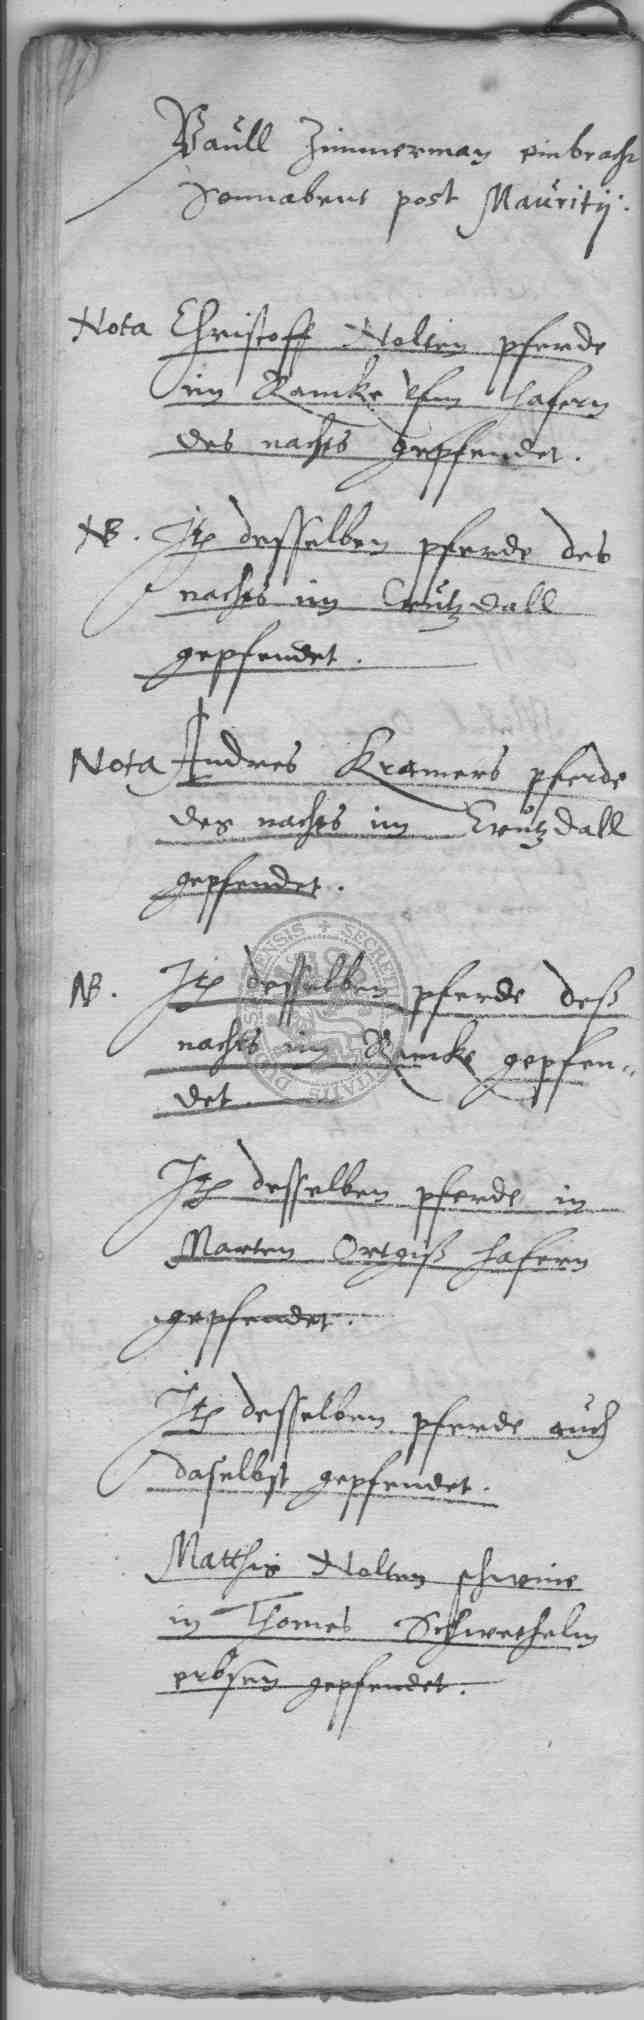 Paull Zimmerman einbracht
Sonnabent post Mauritij:
Nota Christoff Nolten pferde
im Ramke ihm hafern
des nachts gepfendet.
NB. Itē desselben pferde des
nachts im Creutzdall
gepfendet.
Nota Andres Kramers pferde
des nachts im Creutzdall
gepfendet.
NB. Itē desselben pferde deß
nachts im Ramke gepfen„
det
Itē desselben pferde in
Marten Ortgiß hafern
gepfendet.
Itē desselben pferde auch
daselbst gepfendet.
Matthis Nolten schweine
in Thomes Schwethelm
erbsen gepfendet.